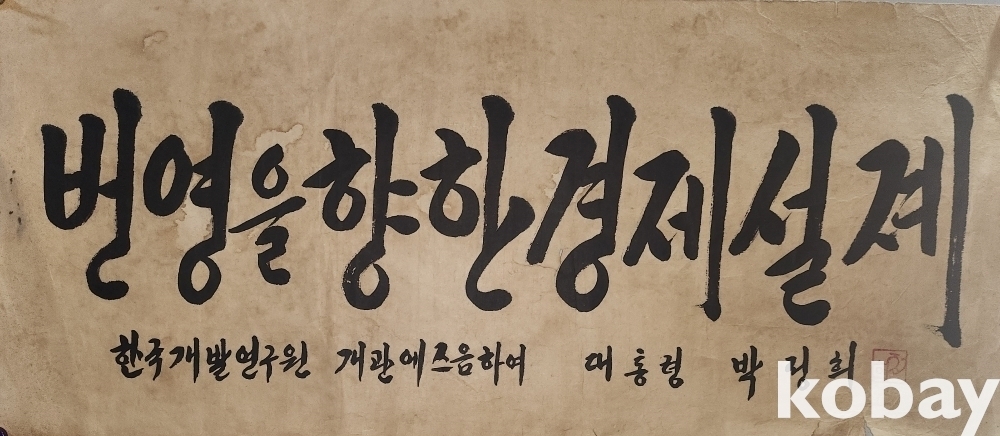 번영을 향한 경제설계
한국개발연구원 개관에 즈음하여 대통령 박정희
kobay